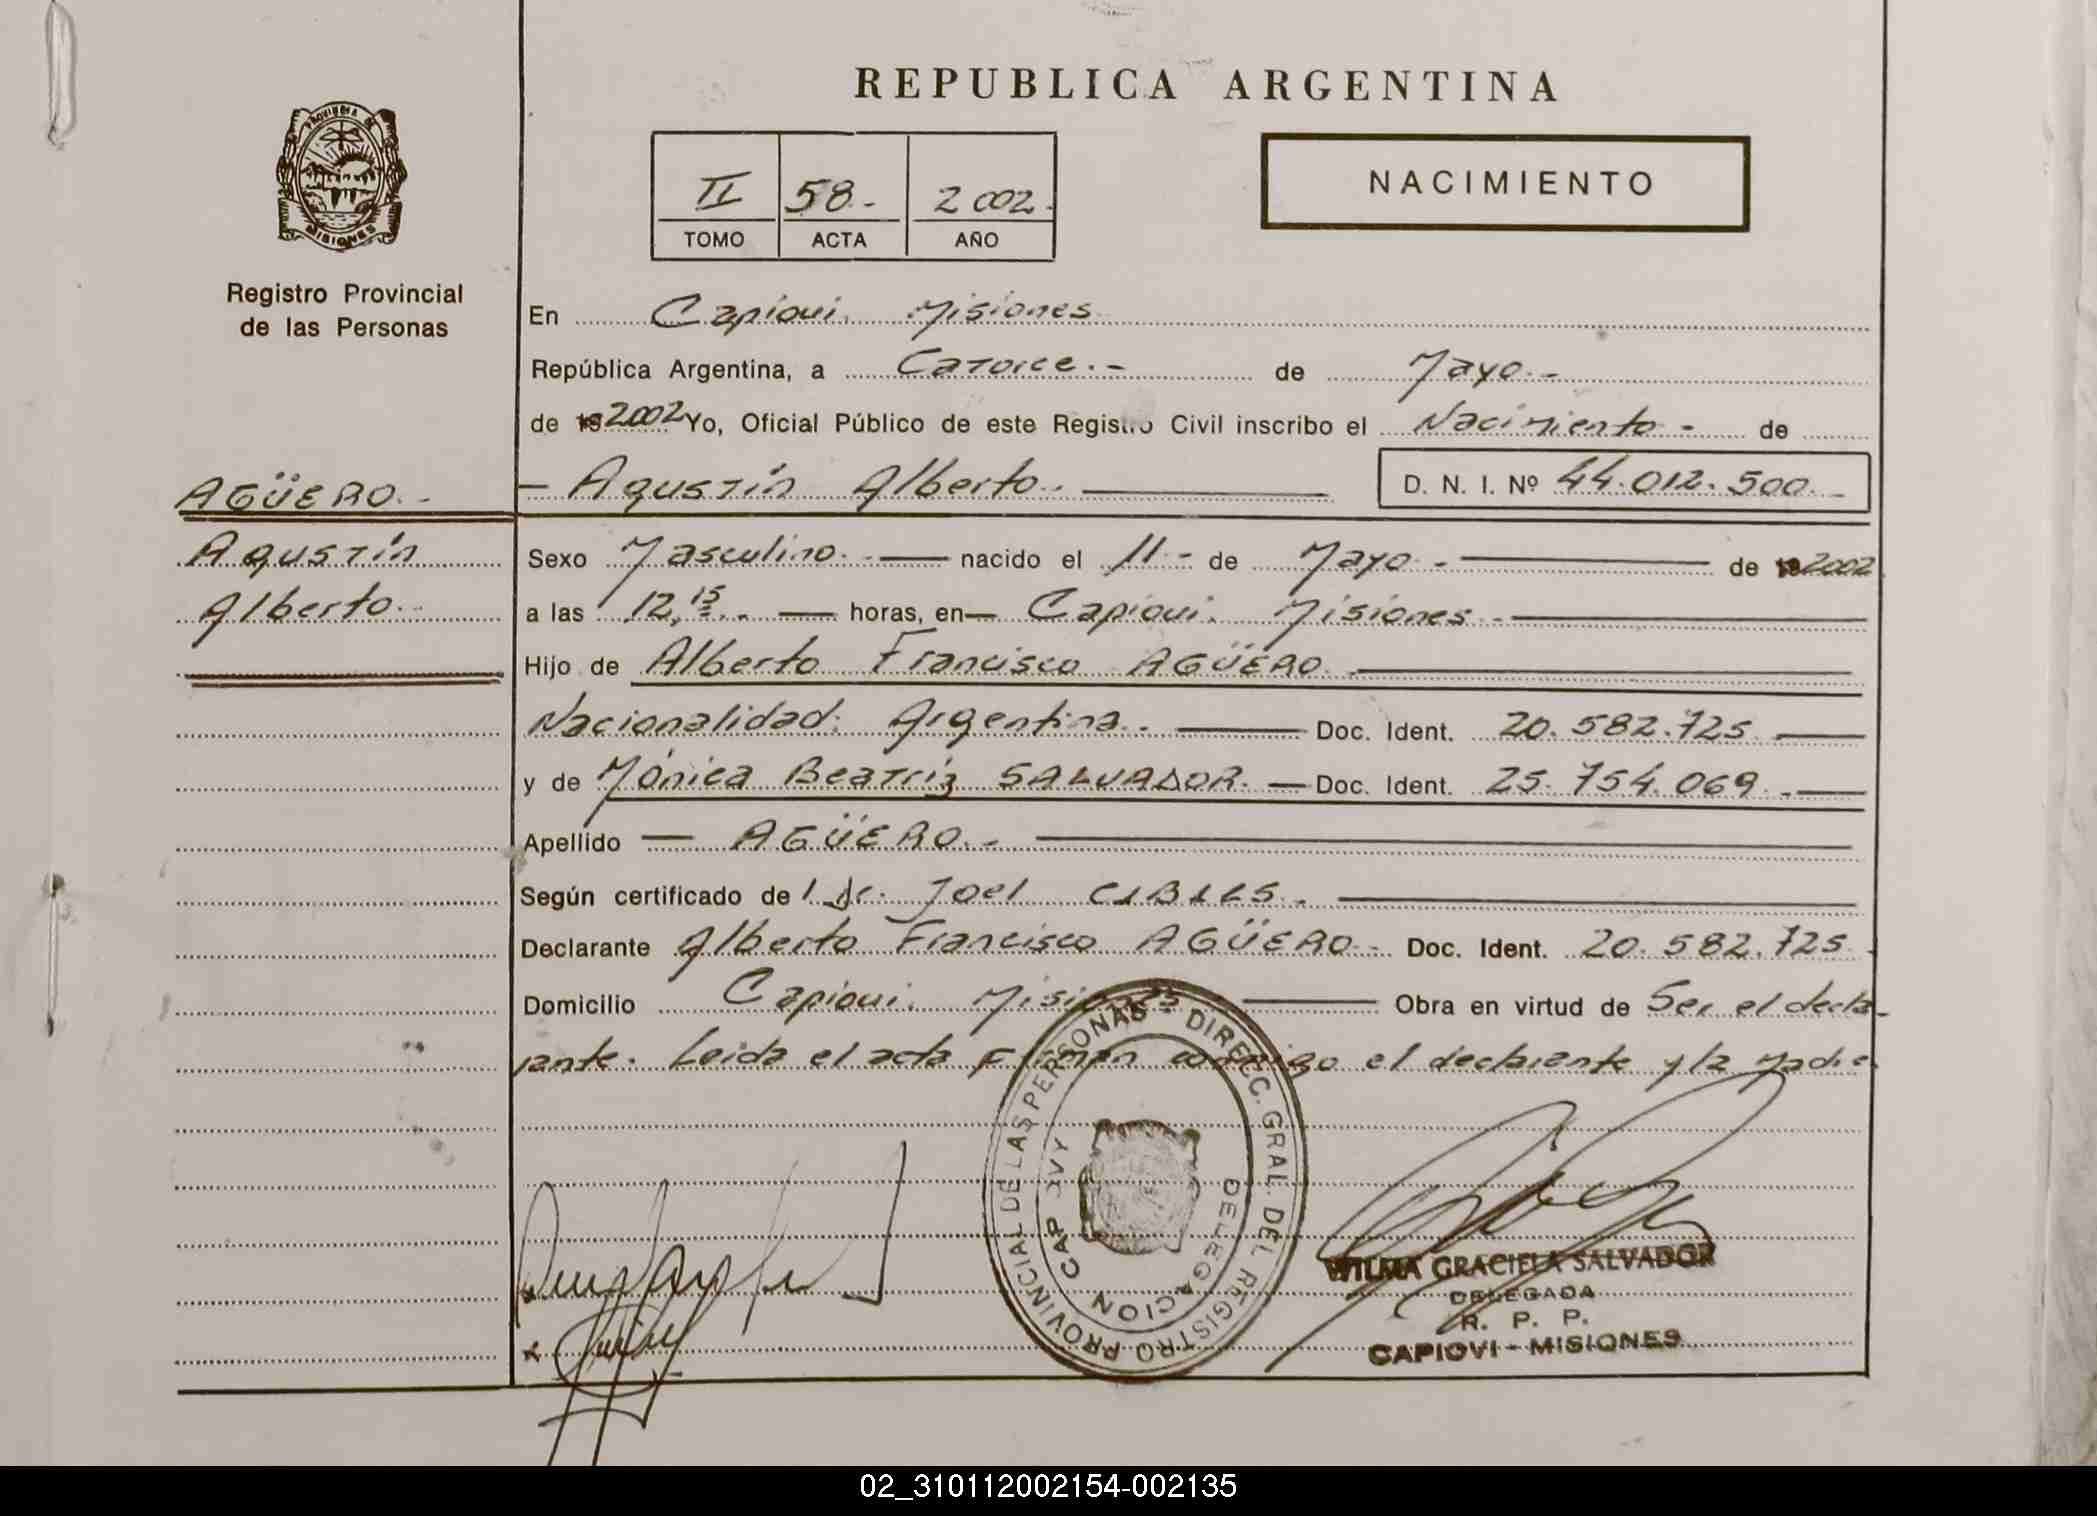 REPUBLICA ARGENTINA
PROVINCIA DE
MISIONES
Registro Provincial
de las Personas
II 58.- 2002.
TOMO ACTA AÑO
NACIMIENTO
En Capiovi. Misiones
República Argentina, a Catorce.- de Mayo.-
de 19 2002 Yo, Oficial Público de este Registro Civil inscribo el Nacimiento - de
AGÜERO.-
- Agustín Alberto. D. N. I. Nº 44.012.500.-
Agustín
Alberto.
Sexo Masculino. nacido el 11 - de Mayo - de 19 2002
a las 12,15 horas, en Capiovi. Misiones
Hijo de Alberto Francisco AGÜERO
Nacionalidad: Argentina. Doc. Ident. 20.582.725
y de Mónica Beatriz SALVADOR. Doc. Ident. 25.754.069.-
Apellido AGÜERO.-
Según certificado de l Dr. Joel CIBILS.
Declarante Alberto Francisco AGÜERO.- Doc. Ident. 20.582.725
Domicilio Capiovi. Misiones Obra en virtud de Ser el decla-
rante. Leida el acta Firman conmigo el declarante y la Madre
DIRECC. GRAL. DEL REGISTRO PROVINCIAL DE LAS PERSONAS
DELEGACION CAP IVY
WILMA GRACIELA SALVADOR
DELEGADA
R. P. P.
CAPIOVI - MISIONES
02_310112002154-002135